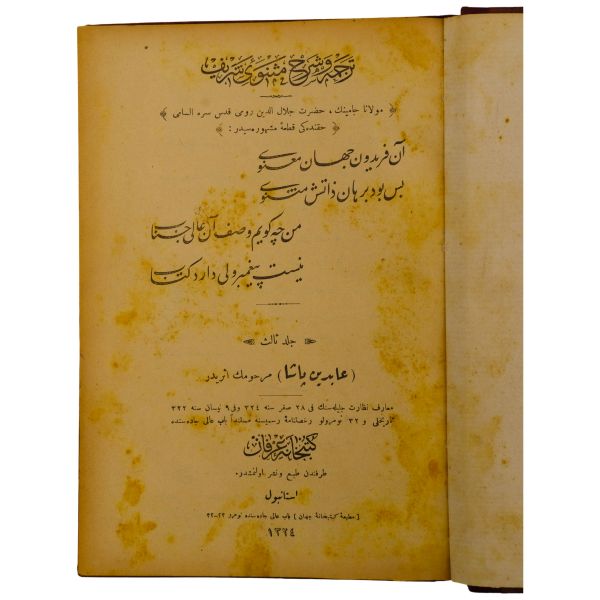 ترجمه و شرح مثنوئ شريف
﴿ مولانا جامينك ، حضرت جلال الدين رومى قدس سره السامى ﴾
﴿ حقنده‌كى قطعهٔ مشهوره‌سيدر : ﴾
آن فريدون جهان معنوى
بس بود برهان ذاتش مثنوى
من چه كويم وصف آن عالى جناب
نيست پيغمبر ولى دارد كتاب
جلد ثالث
( عابدين پاشا ) مرحومك اثريدر
معارف نظارت جليله‌سنك فى ٢٨ صفر سنه ٣٢٤ وفى ٩ نيسان سنه ٣٢٢
تاريخلى و ٣٢ نومرولو رخصتنامهٔ رسميسنه مستنداً باب عالى جاده‌سنده
كتبخانهٔ عرفان
طرفندن طبع و نشر اولنمشدر.
استانبول
[ مطبعه و كتبخانهٔ جهان ] باب عالى جاده‌سنده نومرو ٢٣-٤٢
١٣٢٤